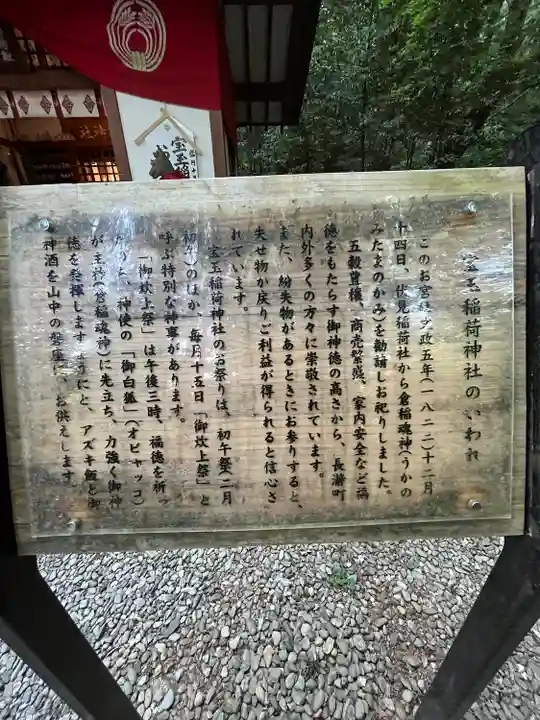 宝玉稲荷神社のいわれ
このお宮は文政五年(一八二二)十二月
十四日、伏見稲荷社から倉稲魂神(うかの
みたまのかみ)を勧請しお祀りしました。
五穀豊穣、商売繁盛、家内安全など福
徳をもたらす御神徳の高さから、長瀞町
内外多くの方々に崇敬されています。
また、紛失物があるときにお参りすると、
失せ物が戻りご利益が得られると信心さ
れています。
宝玉稲荷神社のお祭りは、初午祭(二月
初午)のほか、毎月十五日「御炊上祭」と
呼ぶ特別な神事があります。
「御炊上祭」は午後三時、福徳を祈っ
神使の「御白狐」(オビャッコ)
が主神(倉稲魂神)に先立ち、力強く御神
徳を発揮しますようにと、アズキ飯と御
神酒を山中の磐座に、お供えします。
宝玉稲